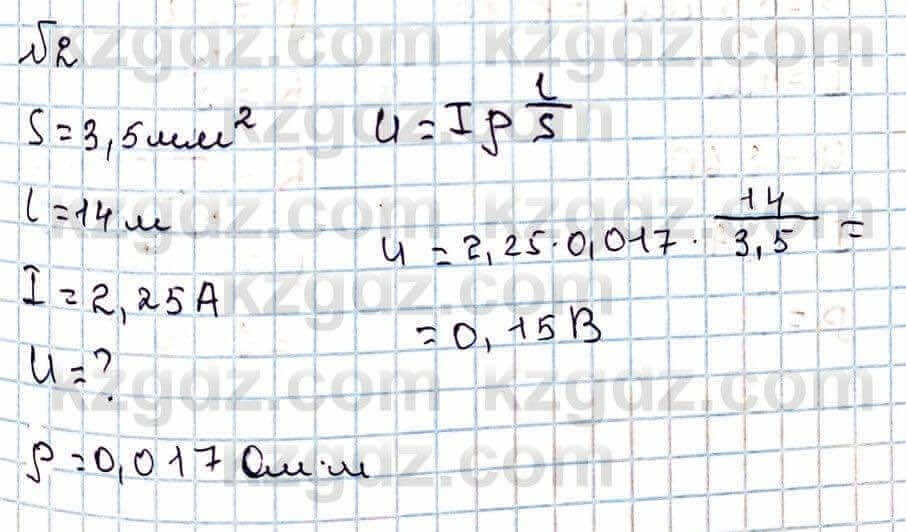 №2
S = 3,5 мм²
l = 14 м
I = 2,25 А
U = ?
ρ = 0,017 Ом·м
U = I ρ l/S
U = 2,25 · 0,017 · 14/3,5 =
= 0,15 В
kzgdz.com
kzgdz.com
kzgdz.com
kzgdz.com
kzgdz.com
kzgdz.com
kzgdz.com
kzgdz.com
kzgdz.com